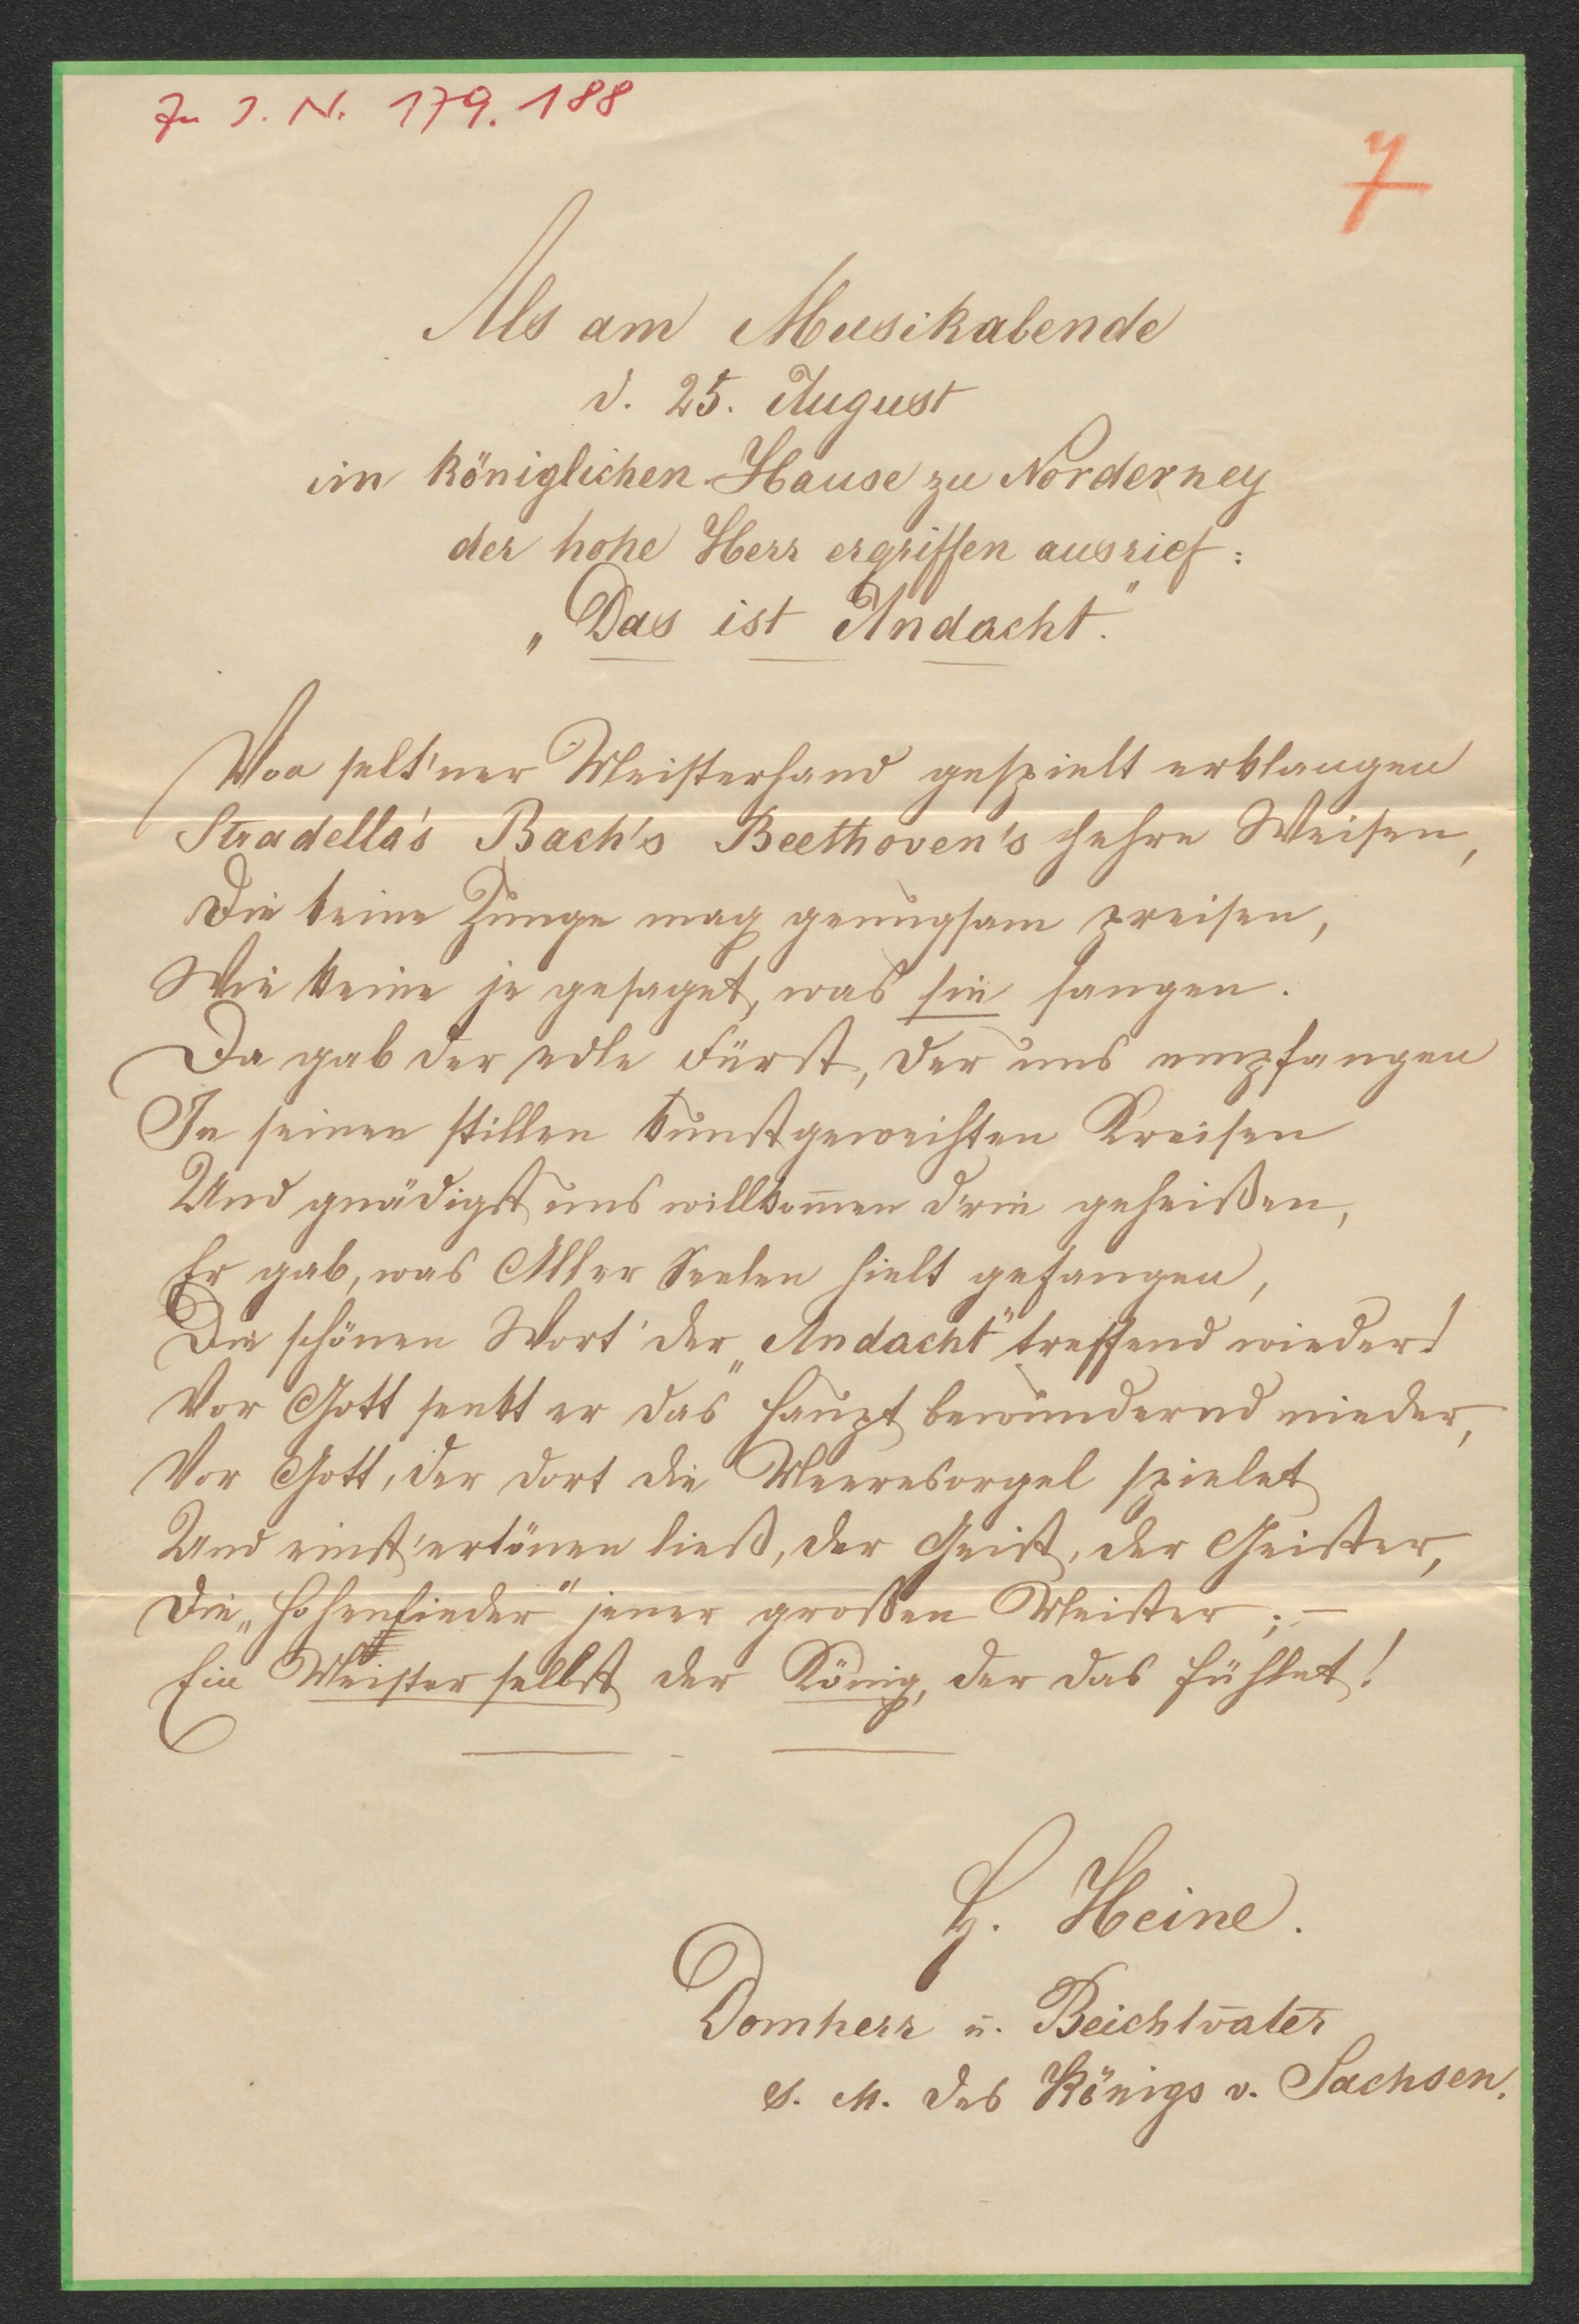 Zu I. N. 179.188
7
Als am Musikabende
d. 25. August
im königlichen Hause zu Norderney
der hohe Herr ergriffen ausrief:
„Das ist Andacht."
Von selt'ner Meisterhand gespielt erklangen
Stradella's Bach's Beethoven's hehre Weisen,
Die keine Zunge mag genugsam preisen,
Wie keine je gesaget, was sie sangen.
Da gab der edle Fürst, der uns empfangen
In seinen stillen kunstgeweihten Kreisen
Und gnädigst uns willkom̄en d'rin geheißen,
Er gab, was Aller Seelen hielt gefangen,
Die schönen Wort' der „Andacht" treffend wieder!
Vor Gott senkt er das Haupt bewundernd nieder,
Vor Gott, der dort die Meeresorgel spielet
Und einst ertönen ließ, der Geist, der Geister,
Die „Hohenlieder" jener großen Meister; –
Ein Meister selbst der König, der das fühlet!
H. Heine.
Domherr u. Beichtvater
S. M. des Königs v. Sachsen.